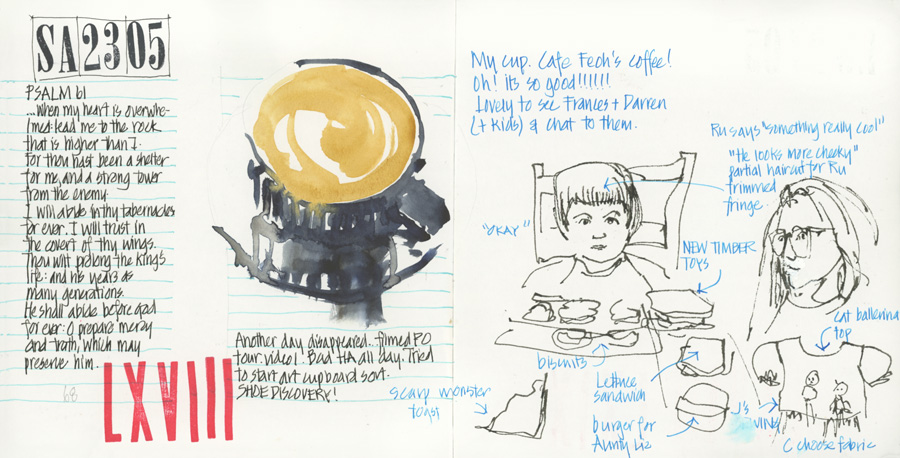 SA 23 05
PSALM 61
...When my heart is overwhe-
lmed: lead me to the rock
that is higher than I.
For thou hast been a shelter
for me, and a strong tower
from the enemy.
I will abide in thy tabernacles
for ever: I will trust in
the covert of thy wings.
Thou wilt prolong the king's
life: and his years as
many generations.
He shall abide before God
for ever: O prepare mercy
and truth, which may
preserve him.
68
LXVIII
Another day disappeared.. filmed PO
tour: video 1! Bad HA all day. Tried
to start art cupboard sort.
SHOE DISCOVERY!
My cup. Cafe Feoh's coffee!
Oh! its so good!!!!!!
Lovely to see Frances + Darren
(+ kids) & chat to them.
Ru says "something really cool"
"He looks more cheeky"
partial haircut for Ru
trimmed
fringe.
"OKAY"
NEW TIMBER
TOYS
cat ballerina
top
biscuits
Lettuce
sandwich
scary monster
toast
burger for
Aunty Liz
J's
C choose fabric